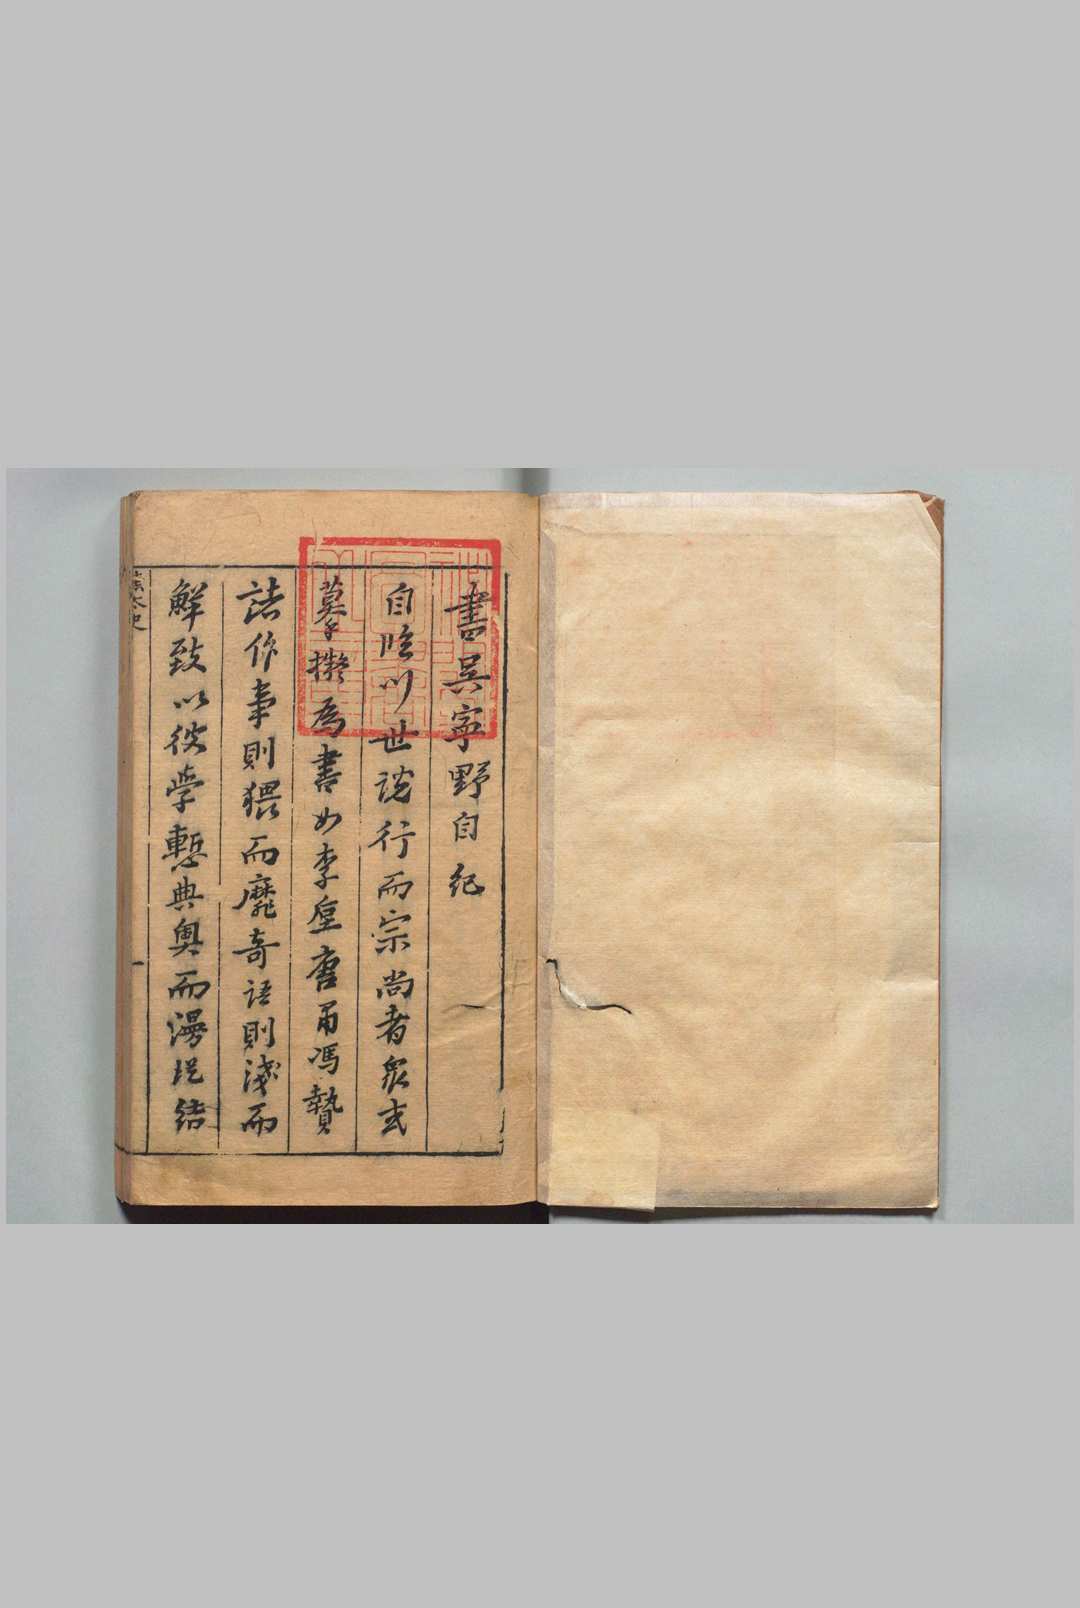 書吳寧野自紀
自臨川世說行而宗尚者眾玄
摹擬為書如李垕唐甬馮贄
諸作事則猥而龐奇語則淺而
鮮致以彼學慙典奧而漫從結